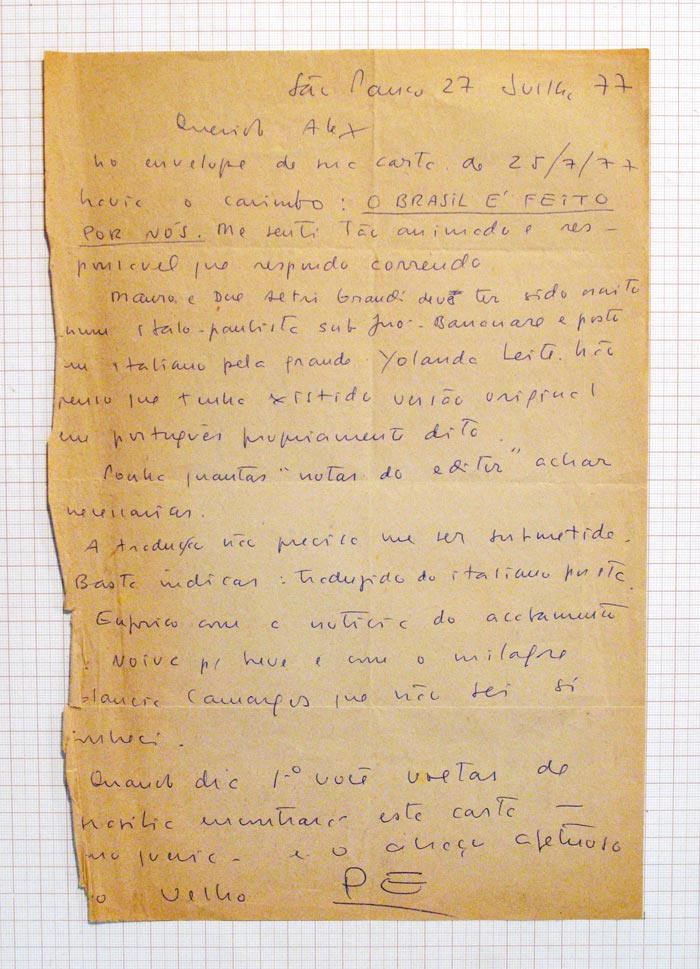 São Paulo 27 Julho 77
Querido Alex
no envelope de sua carta de 25/7/77
havia o carimbo: O BRASIL É FEITO
POR NÓS. Me senti tão animado e res-
ponsável que respondo correndo.
Mauro e Due Altri Grandi deve ter sido escrito
num italo-paulista sub Juó-Bananare e posto
em italiano pela grande Yolanda Leite. Não
penso que tenha existido versão original
em português propriamente dito.
Ponha quantas "notas do editor" achar
necessarias.
A tradução não precisa me ser submetida.
Basta indicar: traduzido do italiano por
Euforico com a noticia do acatamento
Noiva p/ breve e com o milagre
Camargos que não sei si
conheci.
Quando dia 1º você voltar de
Brasilia encontrará esta carta —
e o abraço afetuoso
o velho PE